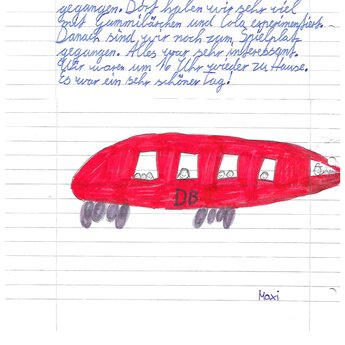 gegangen. Dort haben wir sehr viel
mit Gummibärchen und Cola experimentiert.
Danach sind wir noch zum Spielplatz
gegangen. Alles war sehr interessant.
Wir waren um 16 Uhr wieder zu Hause.
Es war ein sehr schöner Tag!
DB
Maxi